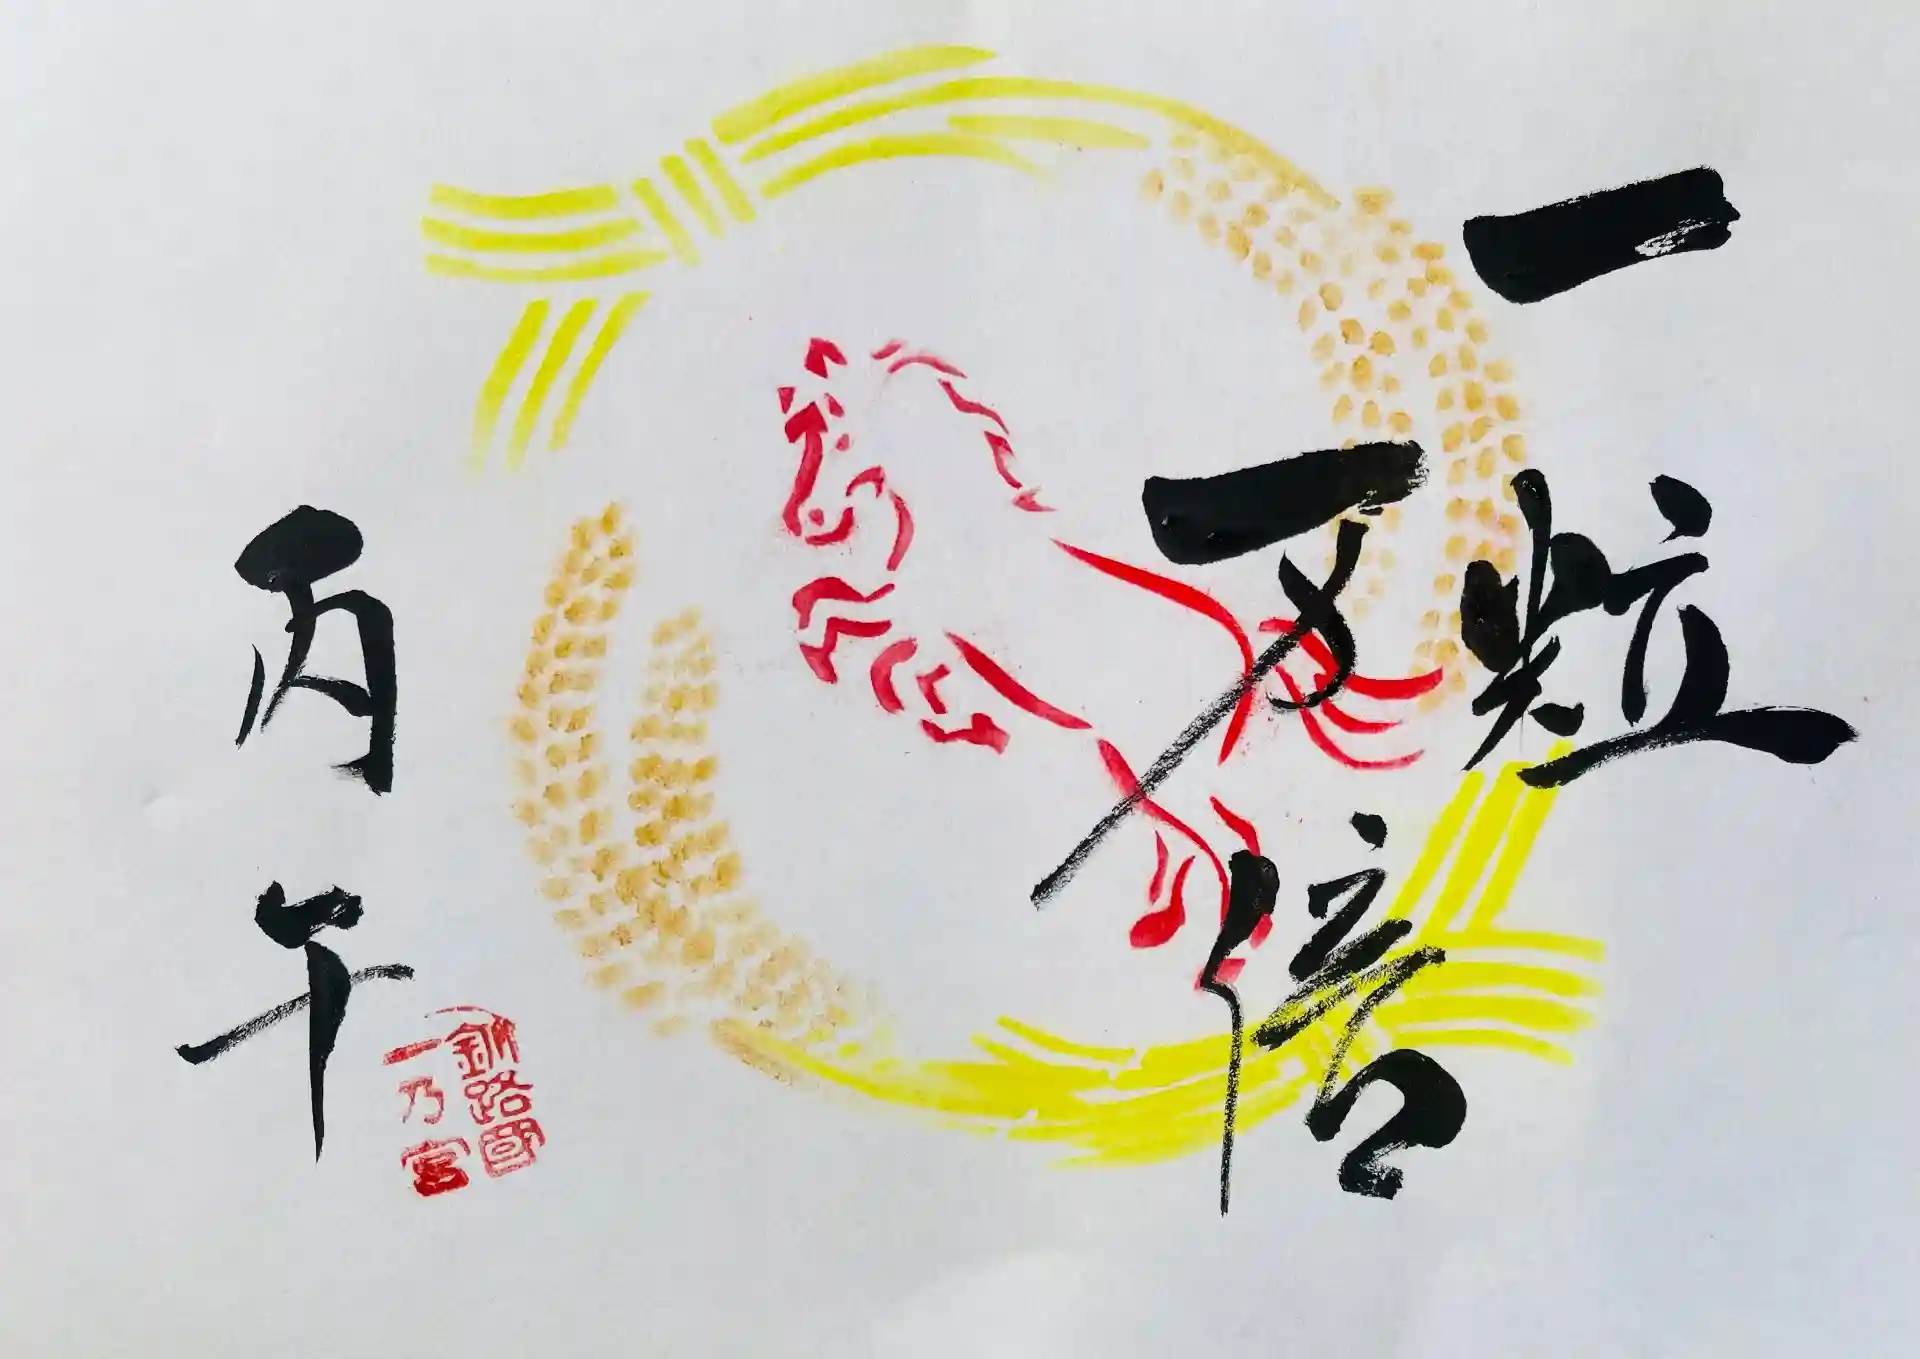 一粒
万倍
丙午
釧路國
一乃宮